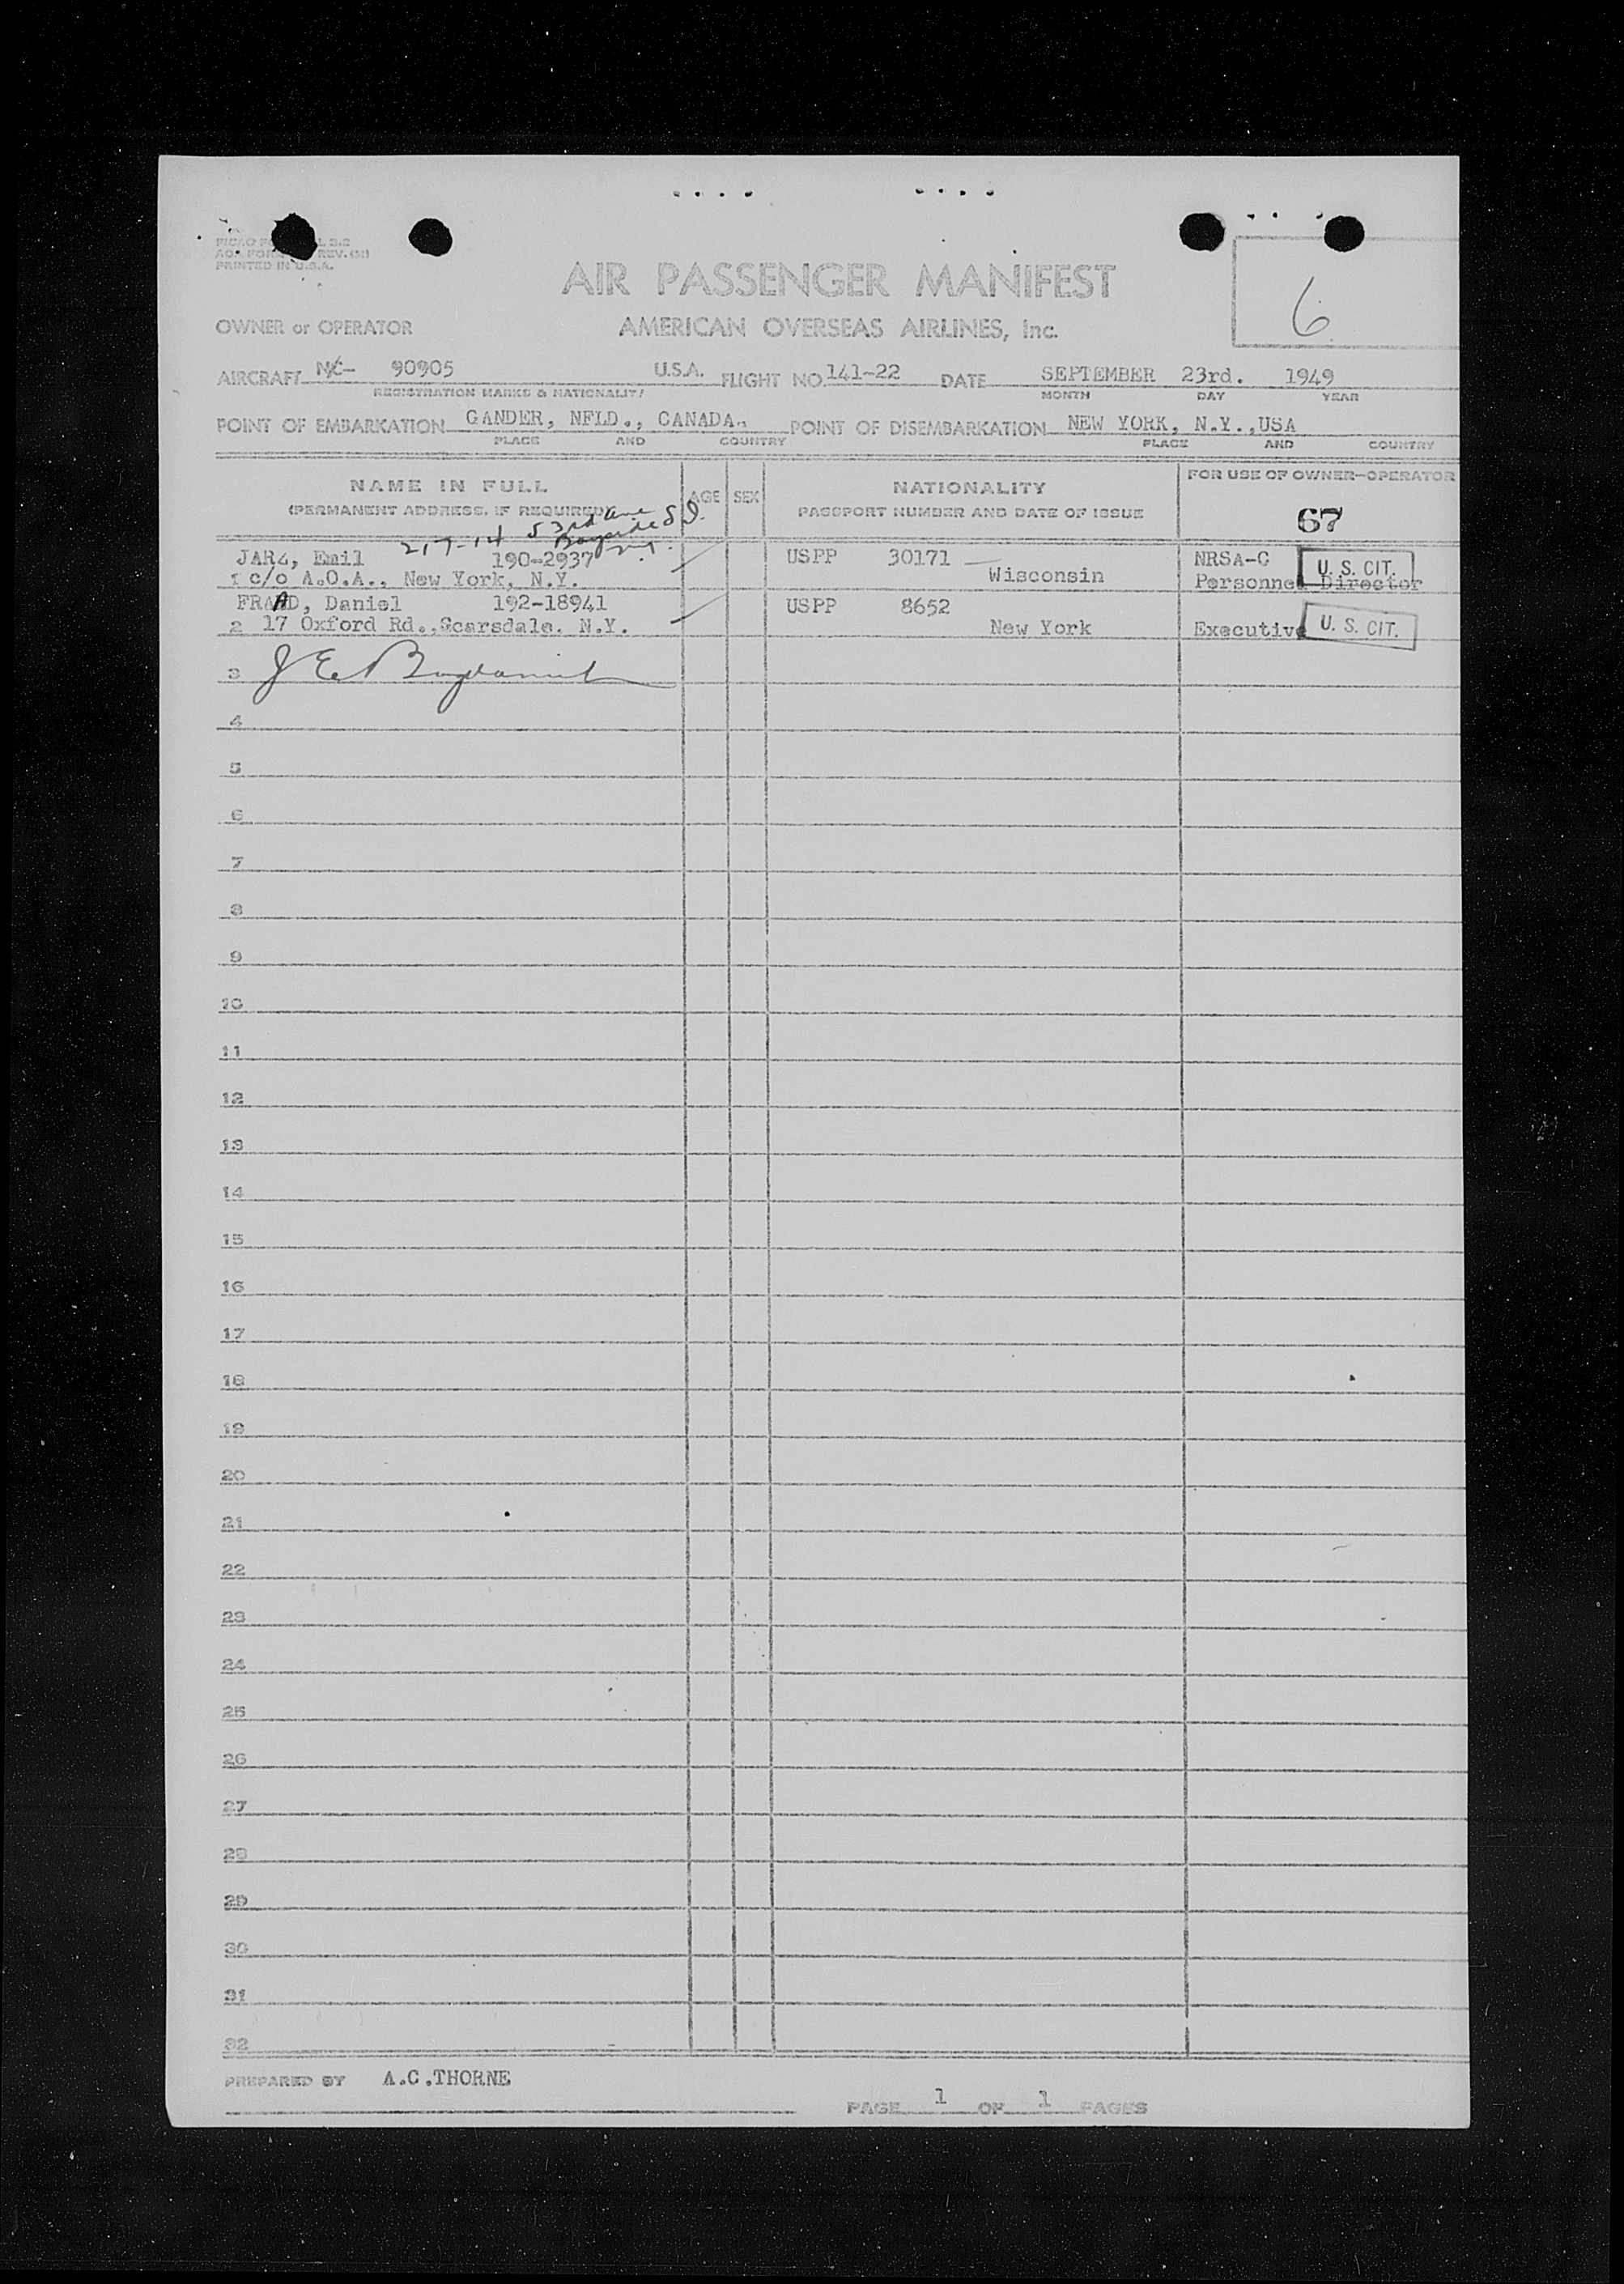 PRINTED IN U.S.A.
AIR PASSENGER MANIFEST
6
OWNER or OPERATOR AMERICAN OVERSEAS AIRLINES, Inc.
AIRCRAFT NC- 90905 U.S.A. FLIGHT NO. 141-22 DATE SEPTEMBER 23rd. 1949
REGISTRATION MARKS & NATIONALITY MONTH DAY YEAR
POINT OF EMBARKATION GANDER, NFLD., CANADA. POINT OF DISEMBARKATION NEW YORK, N.Y.,USA
PLACE AND COUNTRY PLACE AND COUNTRY
NAME IN FULL AGE SEX NATIONALITY FOR USE OF OWNER-OPERATOR
(PERMANENT ADDRESS, IF REQUIRED) PASSPORT NUMBER AND DATE OF ISSUE 67
217-14 53rd Ave Bayside
JARZ, Emil 190-2937 USPP 30171 NRSA-C U. S. CIT.
1 c/o A.O.A., New York, N.Y. Wisconsin Personnel Director
FRAAD, Daniel 192-18941 USPP 8652
2 17 Oxford Rd.,Scarsdale, N.Y. New York Executive U. S. CIT.
3
4
5
6
7
8
9
10
11
12
13
14
15
16
17
18
19
20
21
22
23
24
25
26
27
28
29
30
31
32
PREPARED BY A.C.THORNE
PAGE 1 OF 1 PAGES